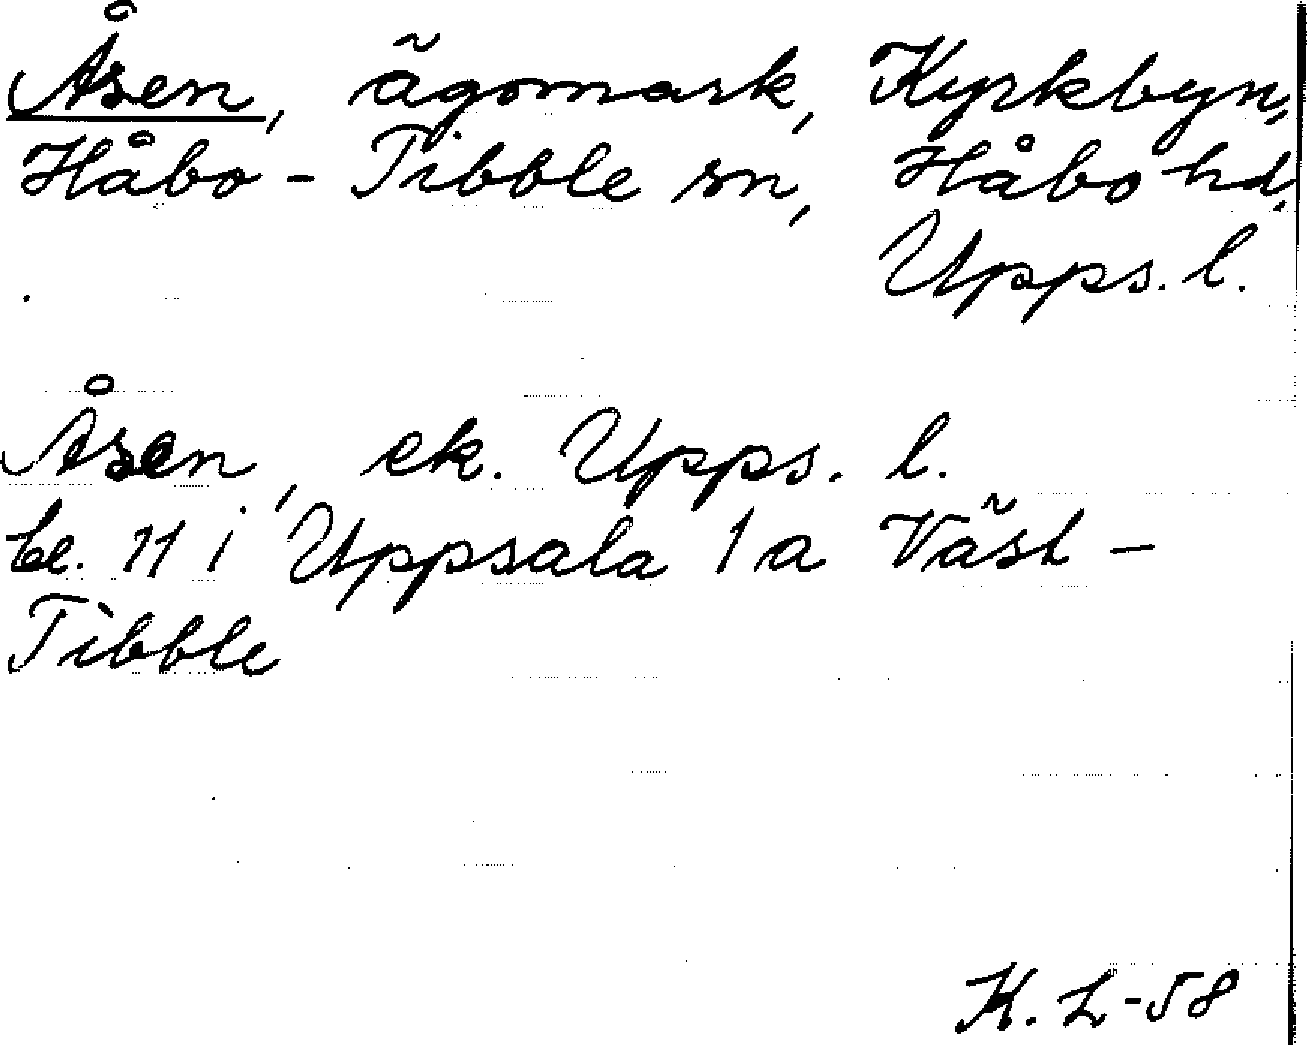 Åsen, ägomark, Kyrkbyn,
Håbo-Tibble sn, Håbo hd,
Upps. l.
Åsen, ek. Upps. l.
be. 11 i Uppsala 1a Väst-
Tibble
K. L-58